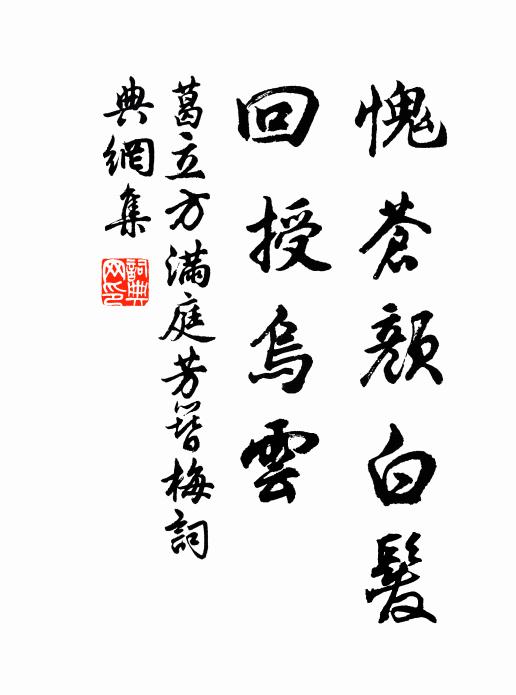 愧蒼顏白髮
回授烏雲
葛立方滿庭芳簪梅詞
典網集
詞典网印